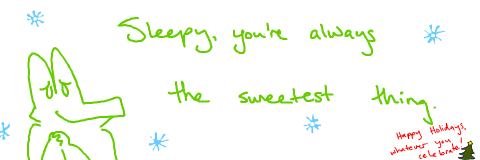 Sleepy, you're always
the sweetest thing.
Happy Holidays,
whatever you
celebrate!